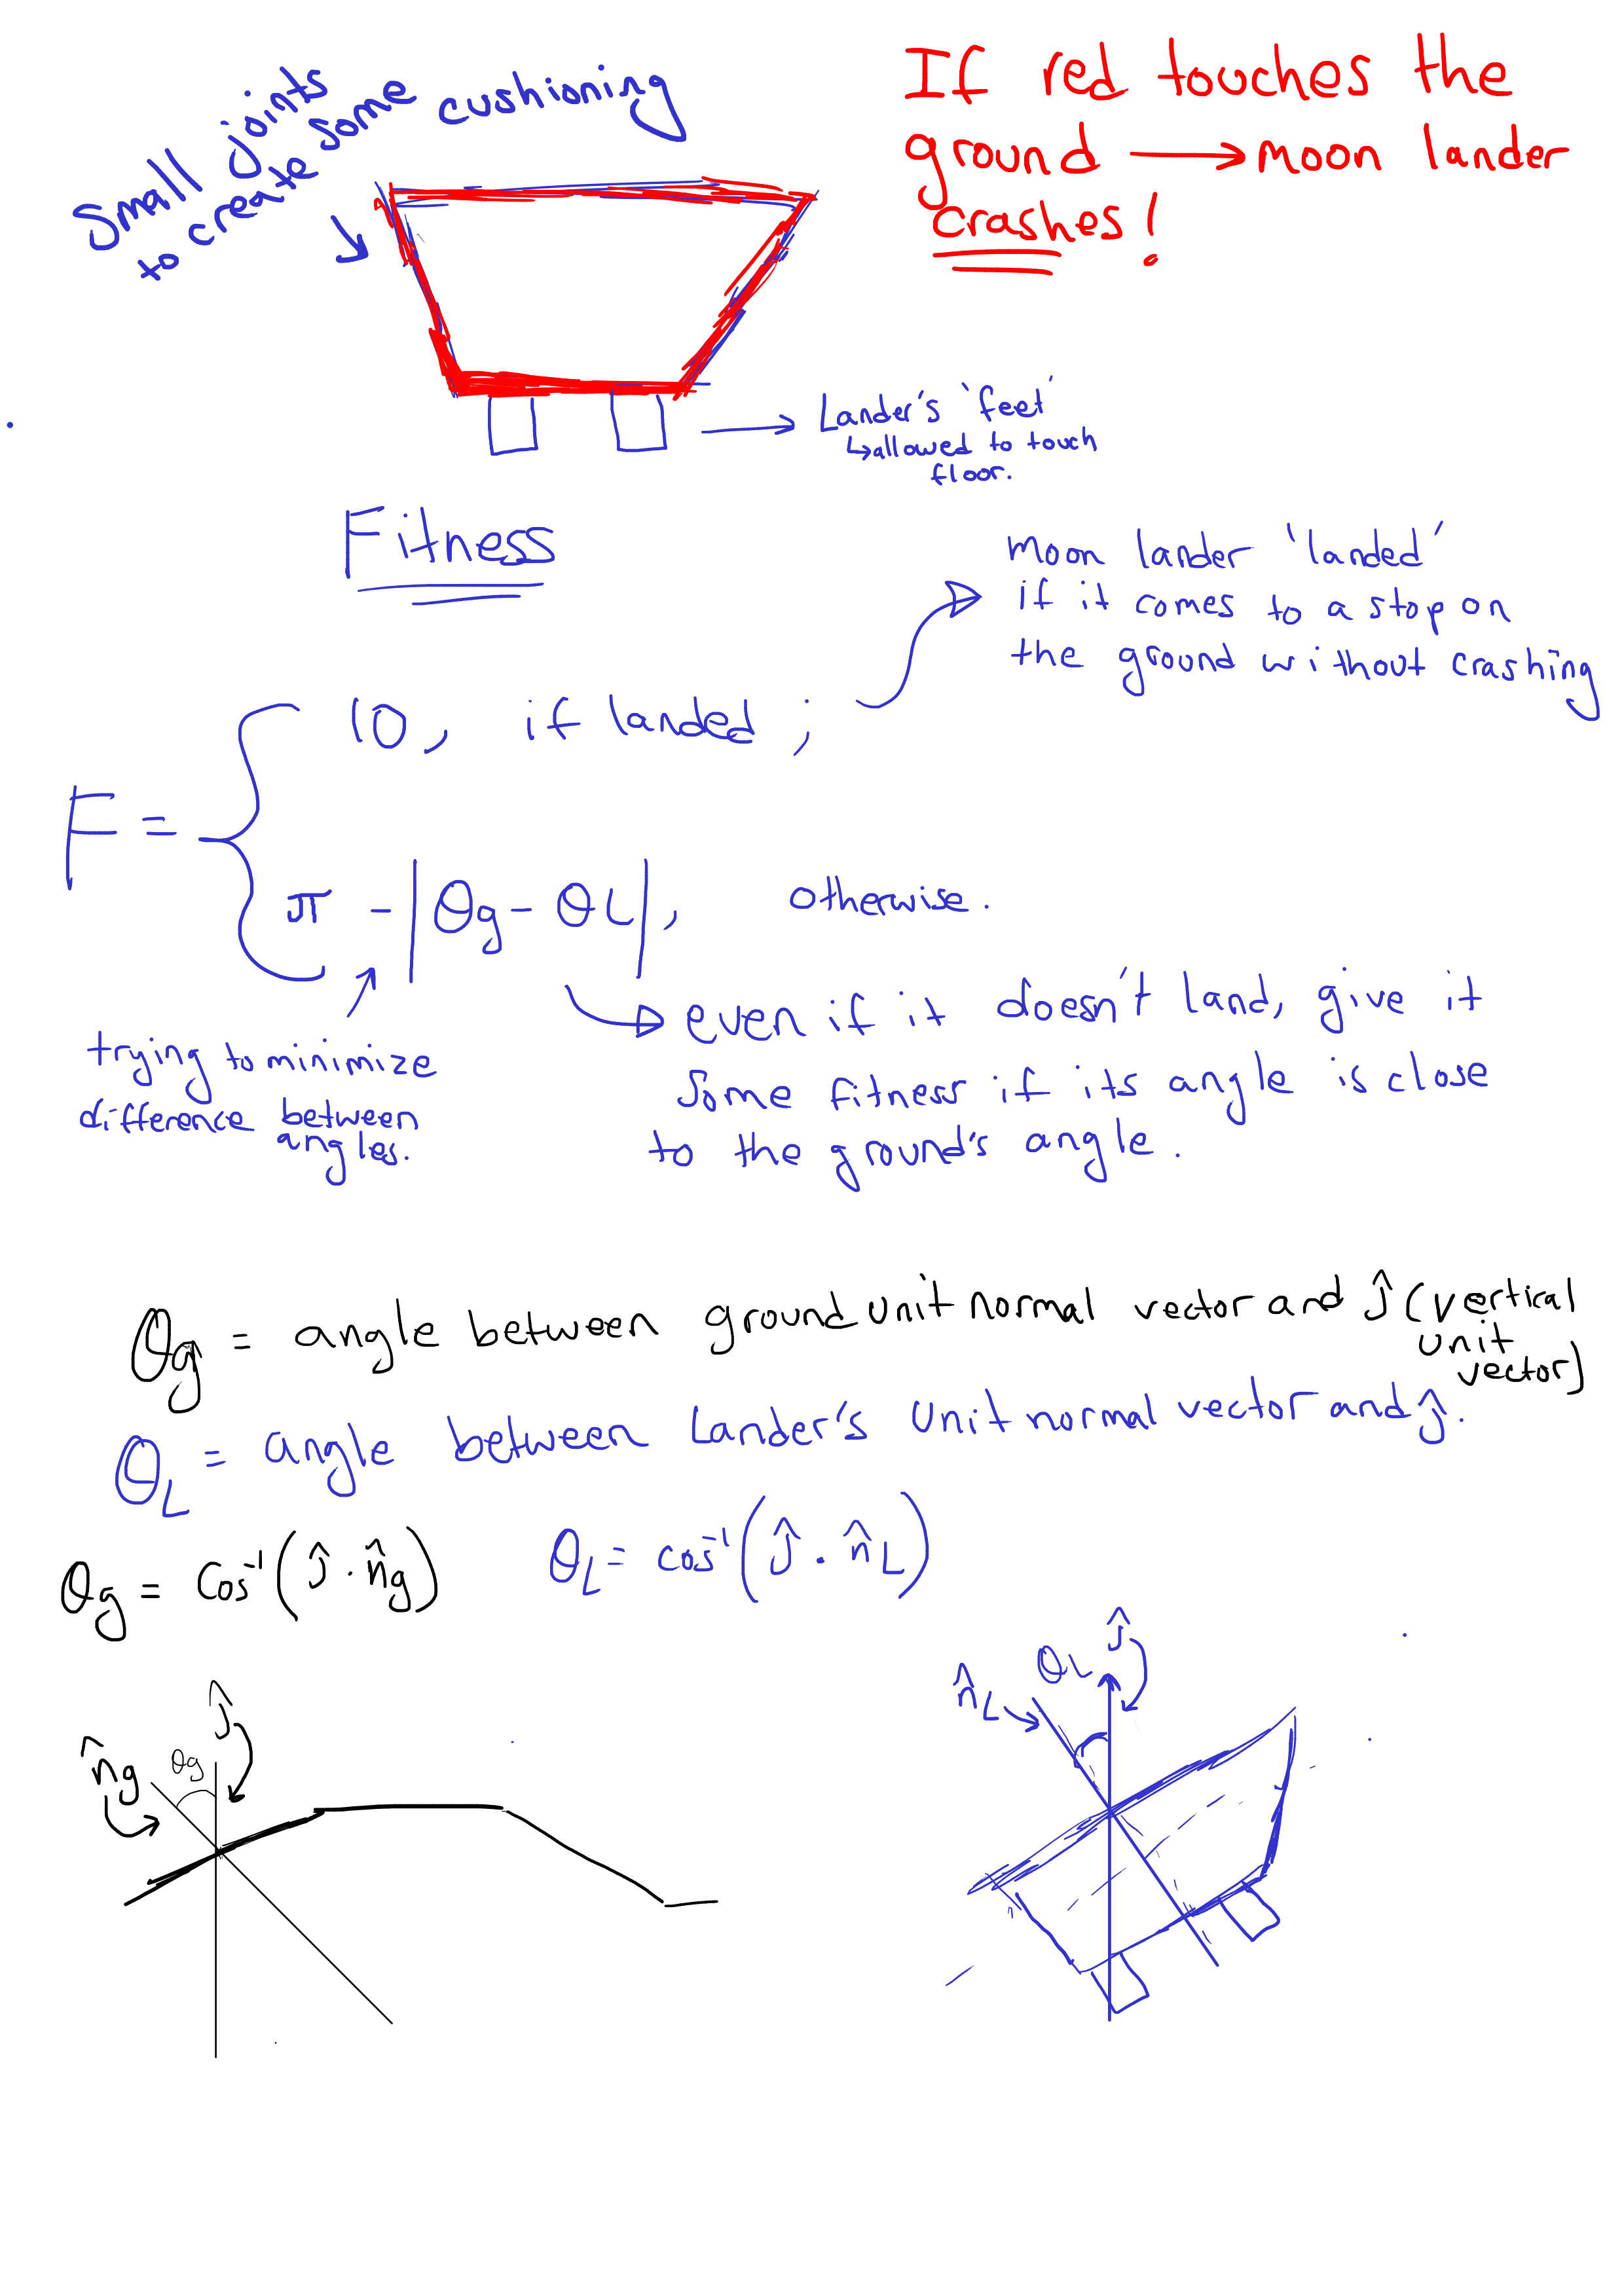 Small joints
to create some cushioning
If red touches the
ground → moon lander
crashes!
Lander's 'feet'
↳ allowed to touch
floor.
Fitness
moon lander 'landed'
if it comes to a stop on
the ground without crashing
10, if landed ;
F =
π - |θg - θL|, otherwise.
trying to minimize
difference between
angles.
even if it doesn't land, give it
some fitness if its angle is close
to the ground's angle.
θg = angle between ground unit normal vector and ĵ (vertical
unit
vector)
θL = angle between Lander's unit normal vector and ĵ.
θg = cos⁻¹(ĵ · n̂g)
θL = cos⁻¹(ĵ · n̂L)
ĵ
n̂g
θg
ĵ
θL
n̂L